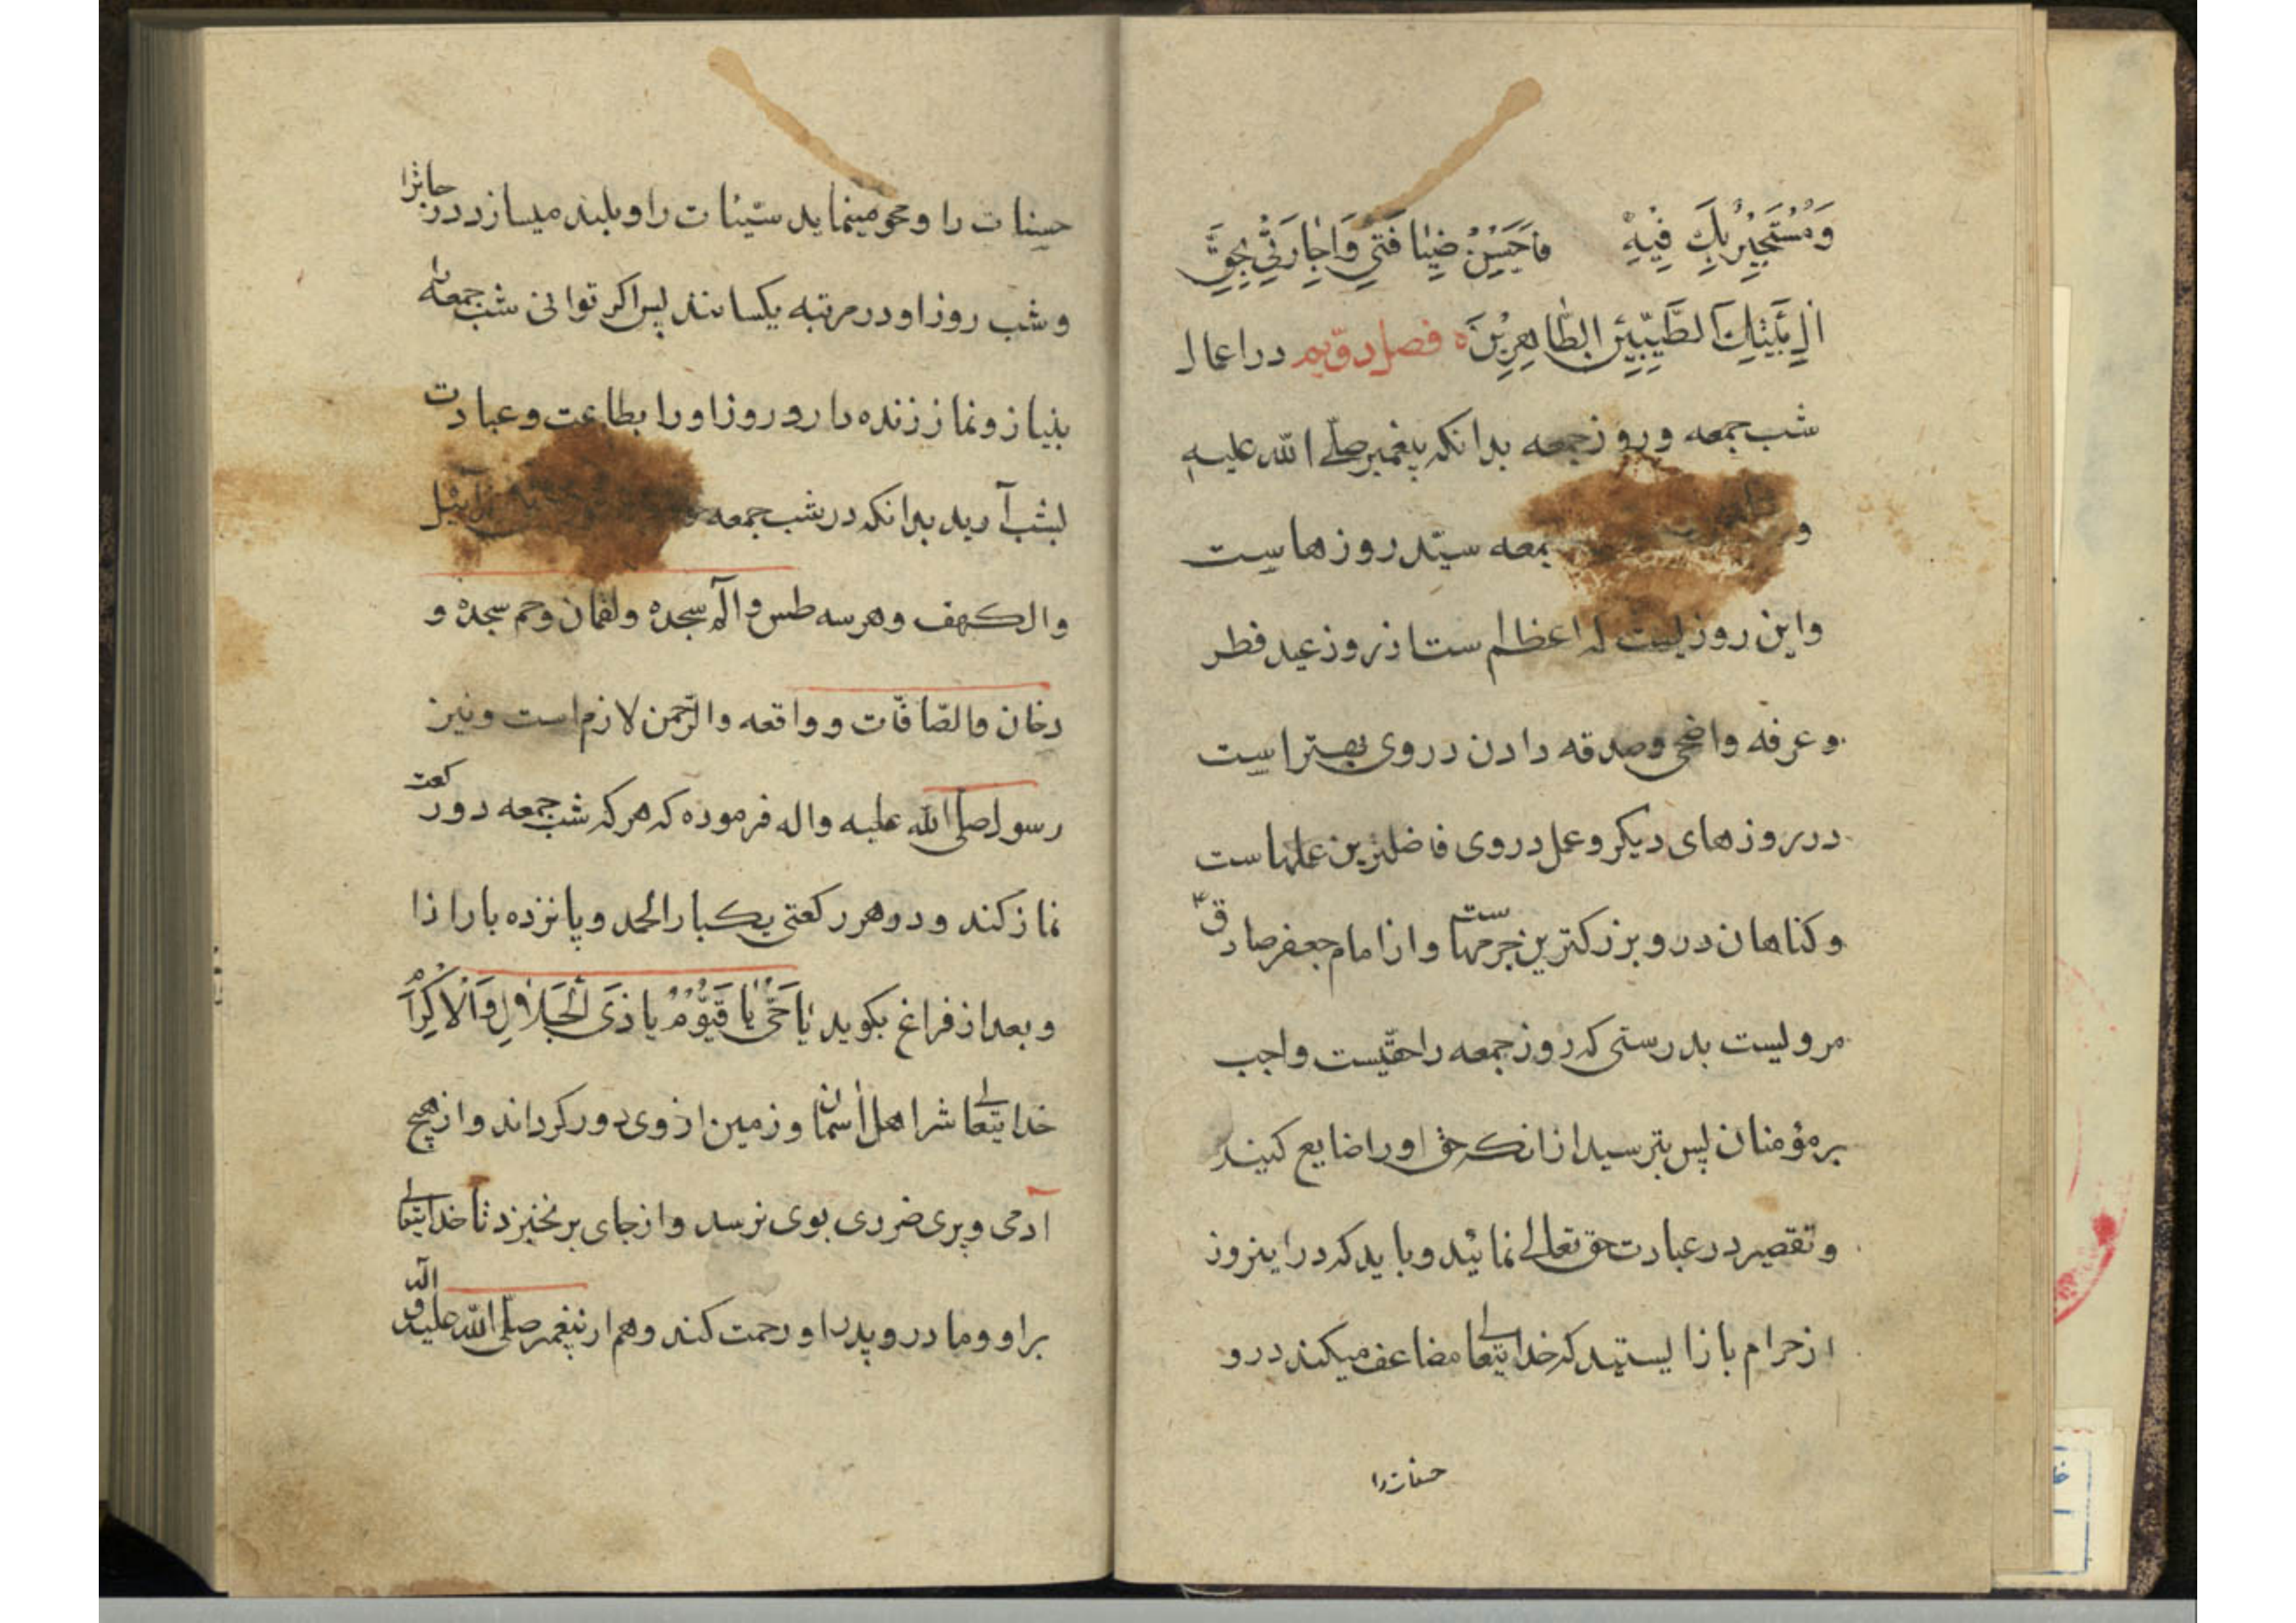 وَمُسْتَجِيْرٌ بِكَ فِيْهِ فَاَحْسِنْ ضِيٰافَتِي وَاَجٰارَتِي بِحَقِّ
اٰلِ بَيْتِكَ الطَّيِّبِيْنَ الطّٰاهِرِيْنَ ه فصل دوّيم در اعمال
شب جمعه و روز جمعه بدانكه پيغمبر صلّى الله عليه
و جمعه سيّد روزهاست
و اين روزيست كه اعظم ست از روز عيد فطر
و عرفه و اضحى و صدقه دادن در وى بهتر است
در روزهاى ديكر و عمل در وى فاضلترين عملهاست
و كناهان در و بزركترين جرمهاست و از امام جعفر صادق ع
مرويست بدرستى كه روز جمعه را حقّيست واجب
بر مؤمنان پس بترسيد از انكه حق او را ضايع كنيد
و تقصير در عبادت حق تعالى نمائيد و بايد كه در اينروز
از حرام باز ايستيد كه خدايتعالى مضاعف ميكند در و
حسنات را
حسنات را و محو مينمايد سيّئات را و بلند ميسازد درجاترا
و شب روز او در مرتبه يكسانند پس اكر توانى شب جمعه را
بنياز و نماز زنده دار و روز او را بطاعت و عبادت
بشب آريد بدانكه در شب جمعه
و الكهف و هر سه طس و الم سجده و لقمان و حم سجده و
دخان و الصّافّات و واقعه و الرّحمن لازم است و نيز
رسول صلى الله عليه و اله فرموده كه هر كه شب جمعه دو ركعت
نماز كند و در هر ركعتى يكبار الحمد و پانزده بار اذا
و بعد از فراغ بكويد يٰا حَىُّ يٰا قَيُّوْمُ يا ذَى الْجَلاٰلِ وَالْاَكْرٰا
خدايتعالى شر اهل آسمان و زمين از وى دور كرداند و از هيچ
آدمى و پرى ضررى بوى نرسد و از جاى برنخيزد تا خدايتعالى
بر او و مادر و پدر او رحمت كند و هم از پيغمبر صلّى الله عليه و اله